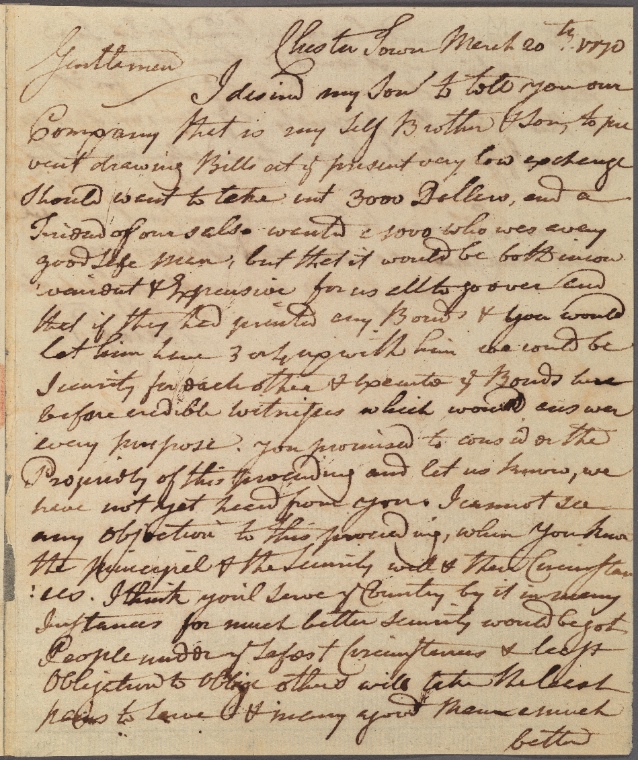 Chester Town March 20th. 1770
Gentlemen
I desired my Son to tell you our
Company that is my self Brother & Son, to pre
vent drawing Bills at ye present very low exchange
should want to take out 3000 Dollers, and a
Friend of ours also wanted 1000 who was a very
good safe man, but that it would be both incon
venient & Expensive for us all to go over and
that if they had printed any Bonds & you would
let him have 3 or 4 up with him we would be
Security for each other & execute ye Bonds here
before credible Witnesses which would answer
every purpose. You promised to consider the
Propriety of this proceeding and let us know, we
have not yet heard from you. I cannot see
any Objection to this proceeding, when you know
the principel & the Security well & their Circumstan
:ces. I think you'l serve ye Country by it in many
Instances for much better security would be got
People under ye safest Circumstances & least
Obligation to Oblige others will take the least
pains to serve & many a good Man much
better